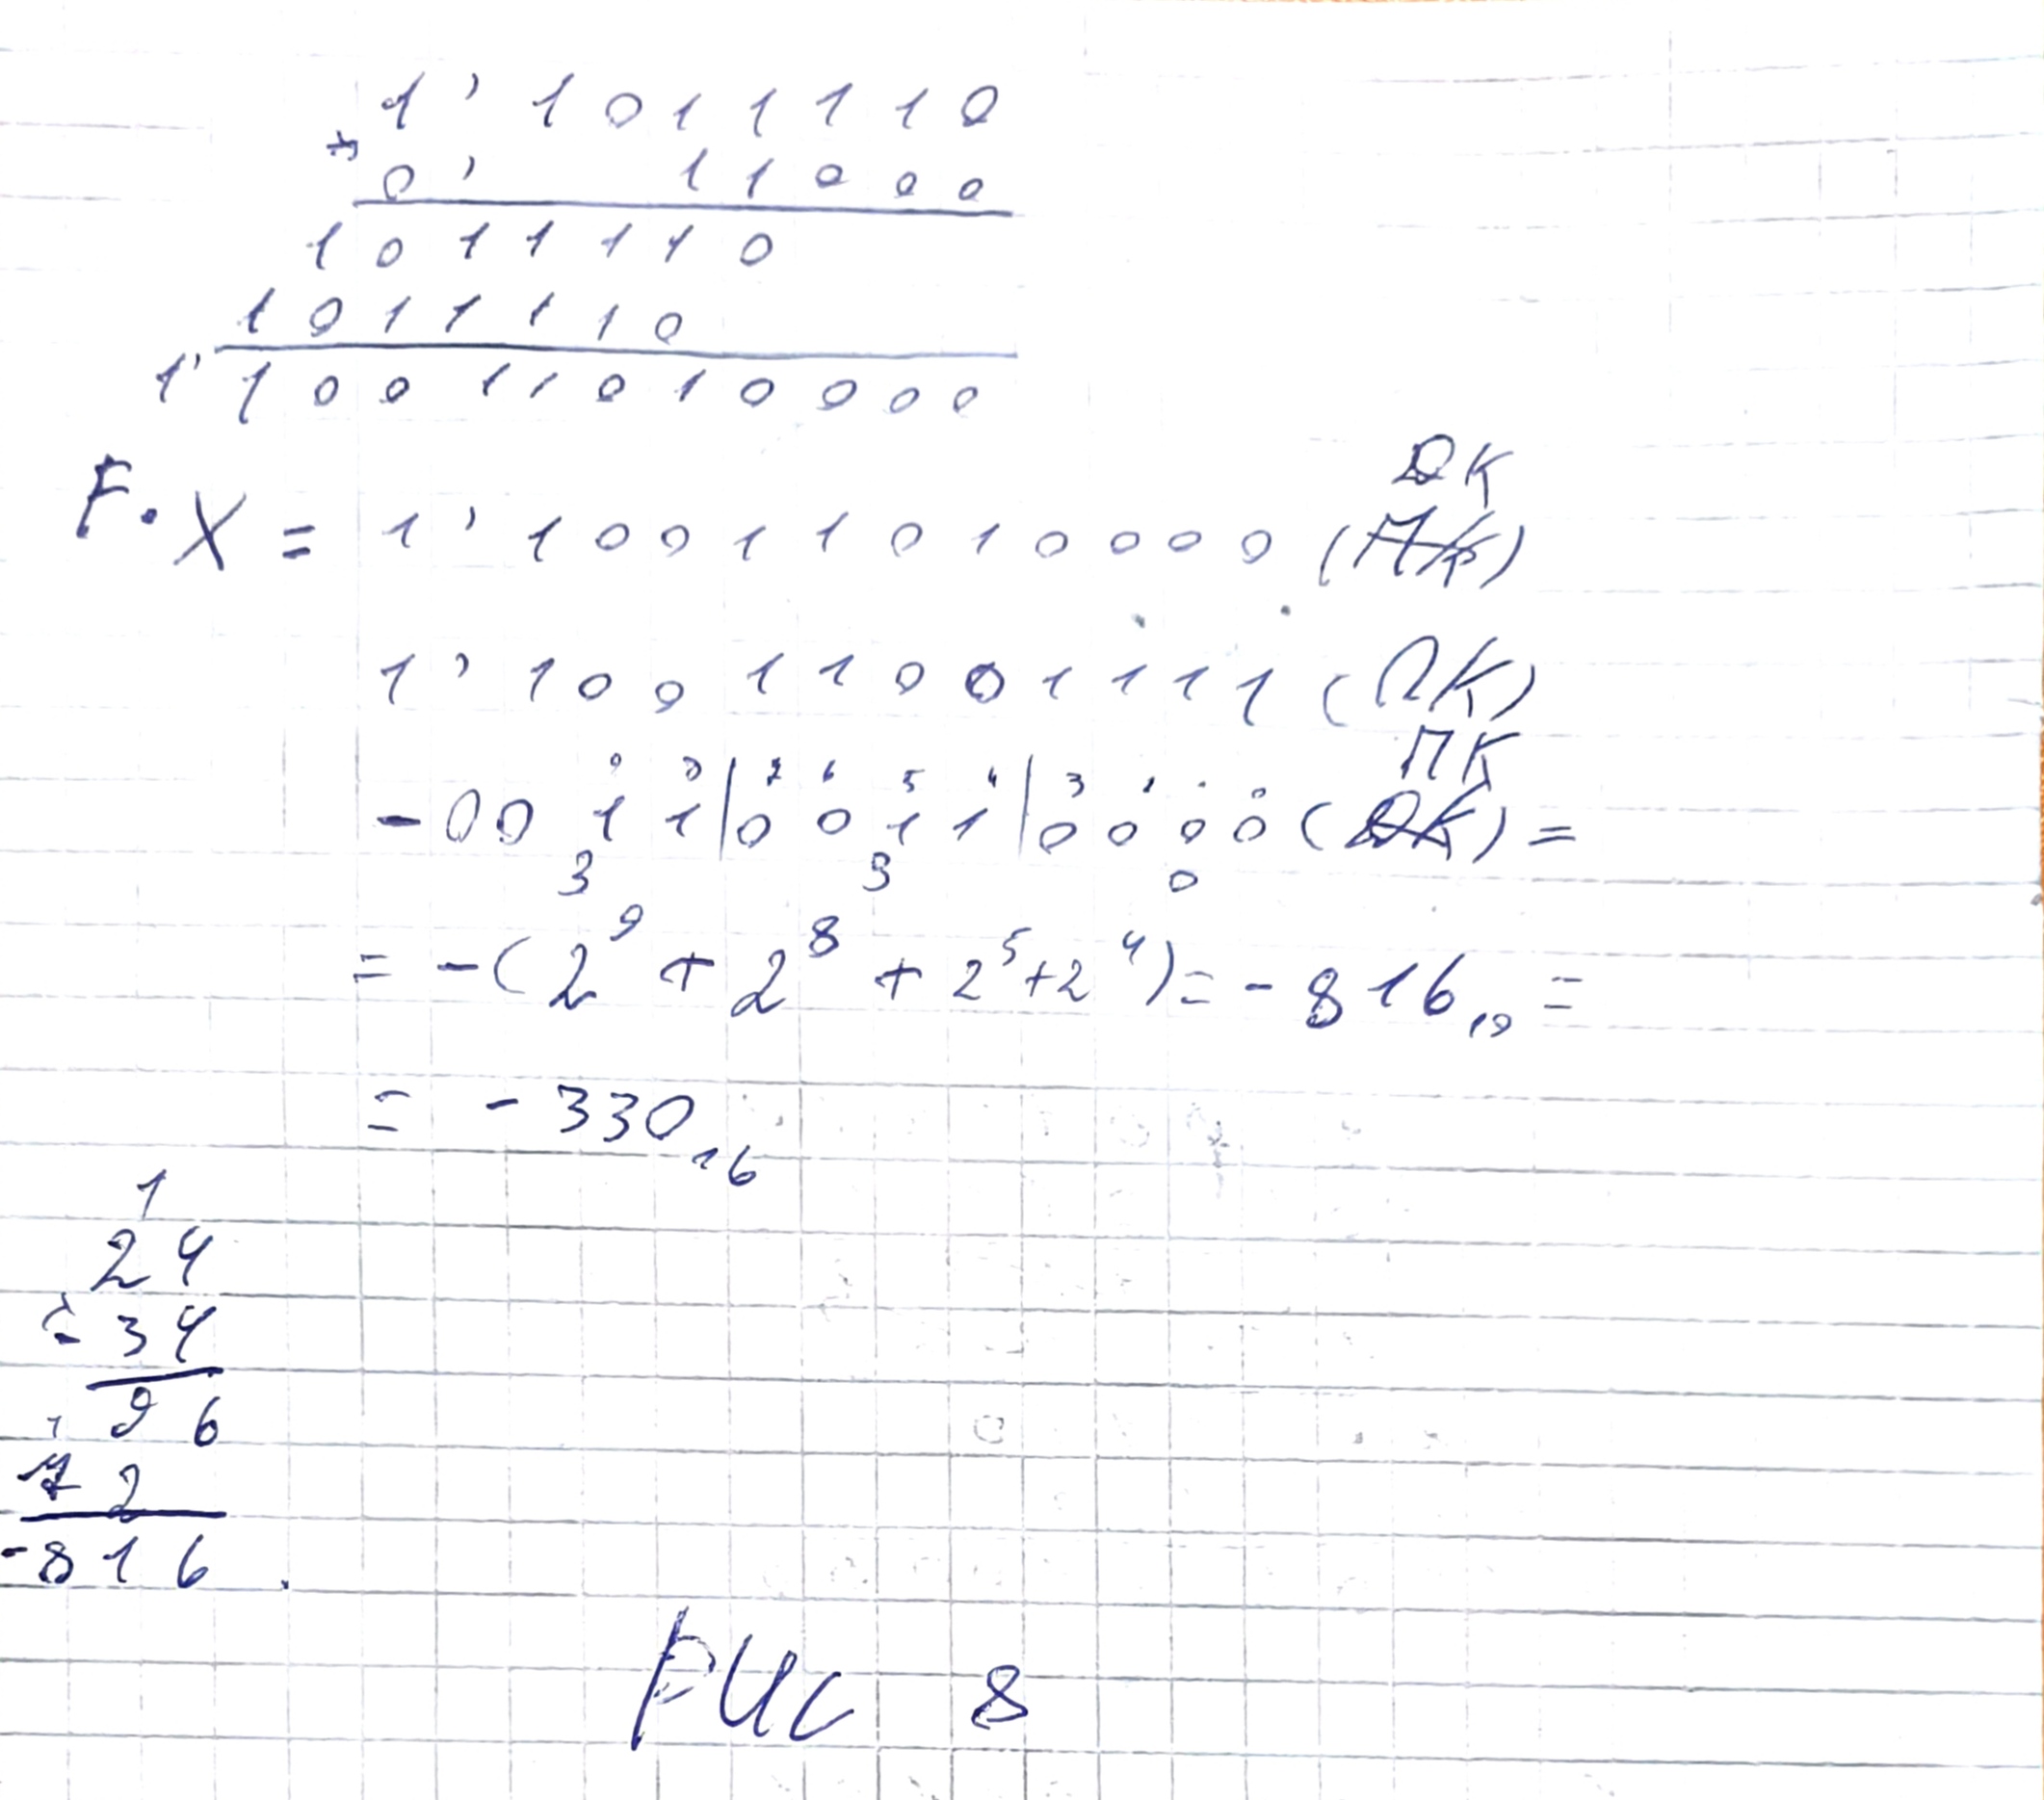 1, 1011110
*
0, 11000
1011110
1011110
1, 10011010000
ДК
F·X = 1, 10011010000 (ПК)
1, 10011001111 (ОК)
9 8 7 6 5 4 3 1 0 ПК
-00 11|0011|0000 (ДК) =
3 3 0
= -(2⁹ + 2⁸ + 2⁵ + 2⁴) = -816₁₀ =
= -330₁₆
1
24
-34
96
72
-816
Рис 8